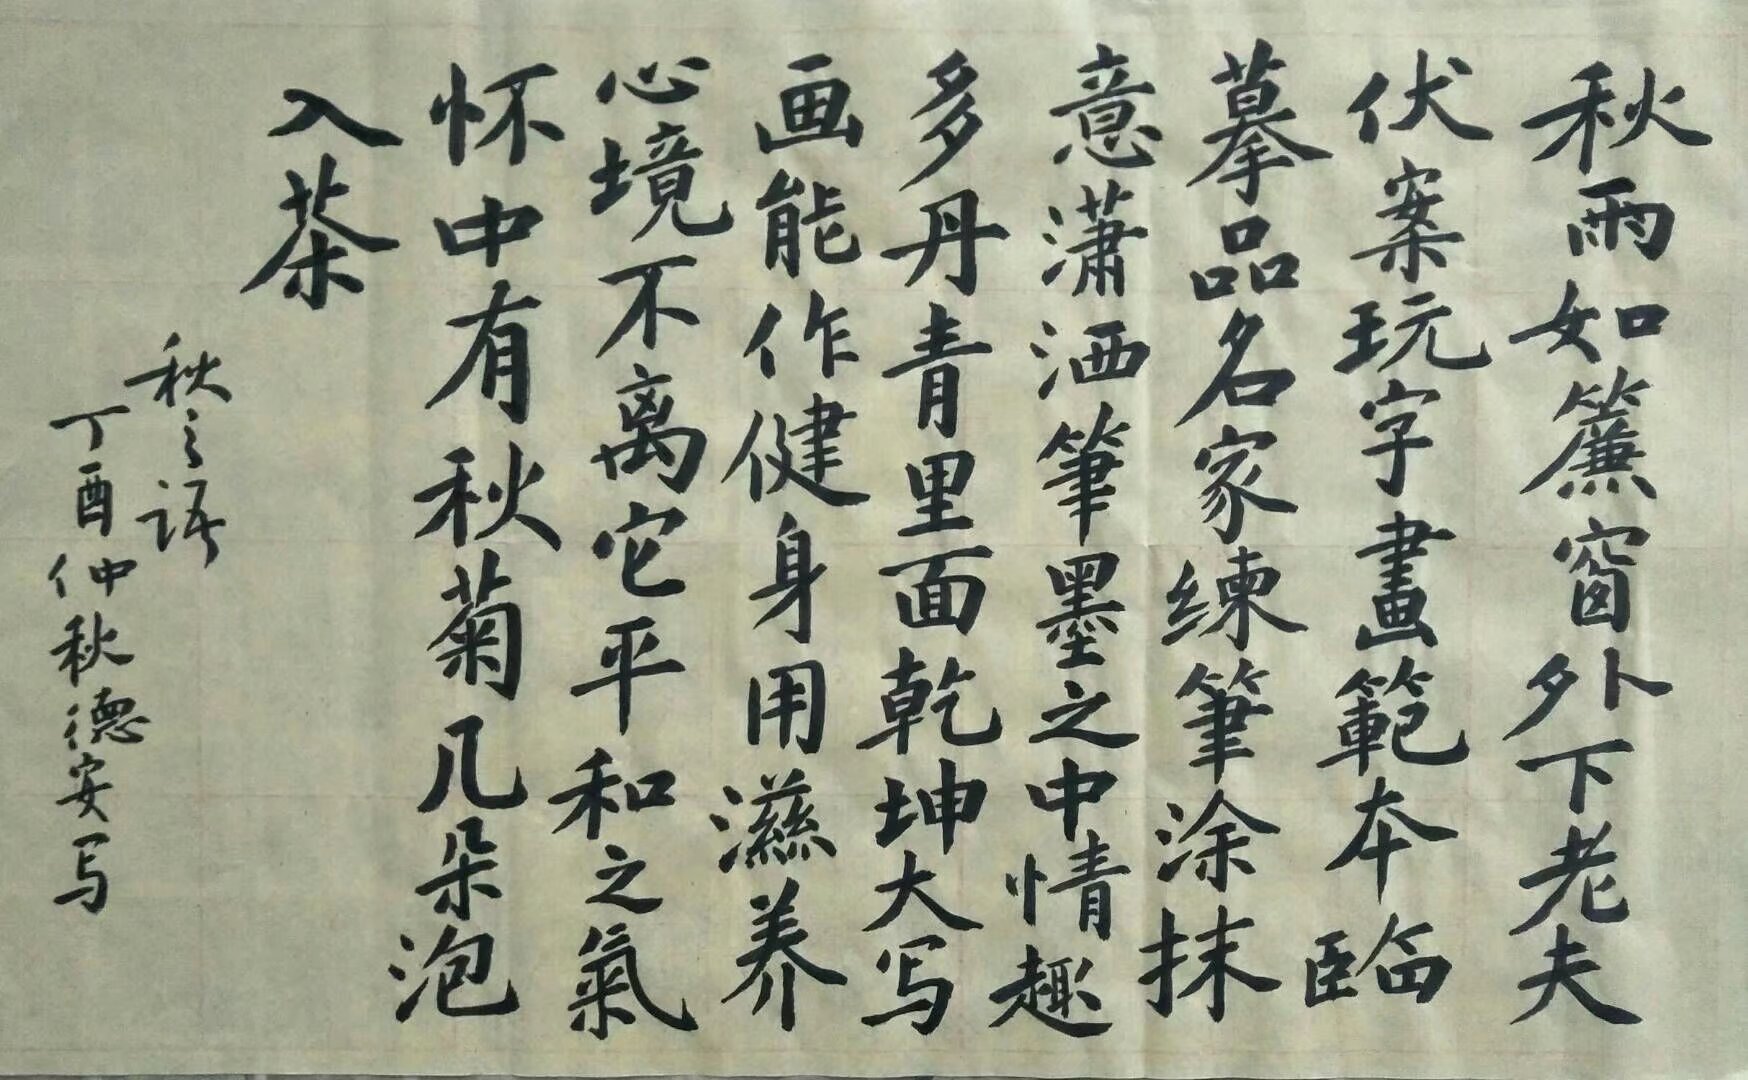 秋雨如簾窗外下老夫
伏案玩字畫範本臨
摹品名家練筆涂抹
意潇洒筆墨之中情趣
多丹青里面乾坤大写
画能作健身用滋养
心境不离它平和之氣
怀中有秋菊几朵泡
入茶
秋之语
丁酉仲秋德安写